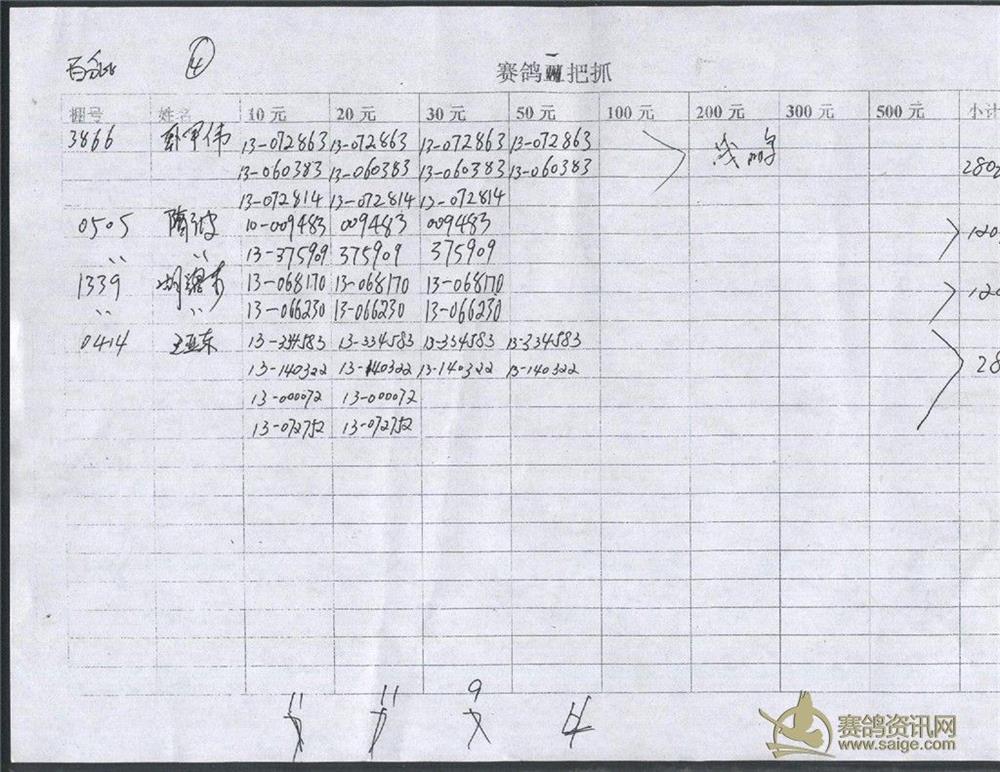 ④
赛鸽一把抓
棚号 姓名 10 元 20 元 30 元 50 元 100 元 200 元 300 元 500 元 小计
3866 13-072863 13-072863 13-072863 13-072863
13-060383 13-060383 13-060383 13-060383 280
13-072814 13-072814 13-072814
0505 10-009483 009483 009483 120
〃 〃 13-375909 375909 375909
1339 13-068170 13-068170 13-068170 120
〃 〃 13-066230 13-066230 13-066230
0414 王亚东 13-334583 13-334583 13-334583 13-334583
13-140322 13-140322 13-140322 13-140322 28
13-000072 13-000072
13-072752 13-072752
11 11 9 4
赛鸽资讯网
www.saige.com